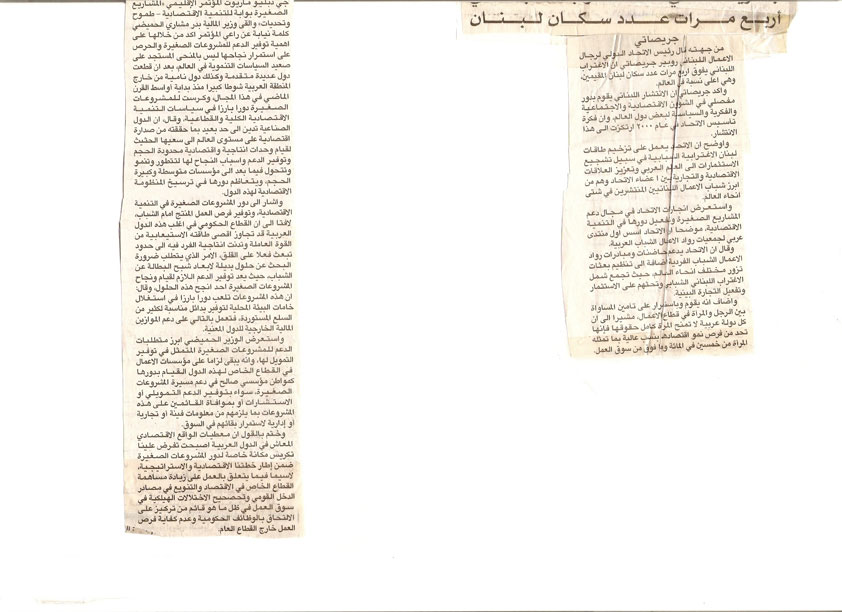 أربع مرات عدد سكان لبنان
جريصاتي
من جهته قال رئيس الاتحاد الدولي لرجال
الاعمال اللبناني روبير جريصاتي ان الاغتراب
اللبناني يفوق اربع مرات عدد سكان لبنان المقيمين،
وهي اعلى نسبة في العالم.
واكد جريصاتي ان الانتشار اللبناني يقوم بدور
مفصلي في الشؤون الاقتصادية والاجتماعية
والفكرية والسياسية لبعض دول العالم، وان فكرة
تاسيس الاتحاد في عام ٢٠٠٠ ارتكزت الى هذا
الانتشار.
واوضح ان الاتحاد يعمل على تزخيم طاقات
لبنان الاغترابية الشبابية في سبيل تشجيع
الاستثمارات الى العالم العربي وتعزيز العلاقات
الاقتصادية والتجارية بين اعضاء الاتحاد وهم من
ابرز شباب الاعمال اللبنانيين المنتشرين في شتى
انحاء العالم.
واستعرض انجازات الاتحاد في مجال دعم
المشاريع الصغيرة وتفعيل دورها في التنمية
الاقتصادية، موضحا ان الاتحاد اسس اول منتدى
عربي لجمعيات رواد الاعمال الشباب العربية.
وقال ان الاتحاد يدعم حاضنات ومبادرات رواد
الاعمال الشباب الفردية اضافة الى تنظيم بعثات
تزور مختلف انحاء العالم، حيث تجمع شمل
الاغتراب اللبناني الشبابي وتحثهم على الاستثمار
وتفعيل التجارة البينية.
واضاف انه يقوم وباستمرار على تامين المساواة
بين الرجل والمراة في قطاع الاعمال، مشيرا الى ان
كل دولة عربية لا تمنح المراة كامل حقوقها فإنها
تحد من فرص نمو اقتصادها بنسب عالية بما تمثله
المراة من خمسين في المائة وما فوق من سوق العمل.
جي دبليو ماريوت المؤتمر الإقليمي «المشاريع
الصغيرة بوابة للتنمية الاقتصادية - طموح
وتحديات» والقى وزير المالية بدر مشاري الحميضي
كلمة نيابة عن راعي المؤتمر اكد من خلالها على
اهمية توفير الدعم للمشروعات الصغيرة والحرص
على استمرار نجاحها ليس بالمنحى المستجد على
صعيد السياسات التنموية في العالم، بعد ان قطعت
دول عديدة متقدمة وكذلك دول نامية من خارج
المنطقة العربية شوطا كبيرا منذ بداية أواسط القرن
الماضي في هذا المجال، وكرست للمشروعات
الصغيرة دورا بارزا في سياسات التنمية
الاقتصادية الكلية والقطاعية. وقال، ان الدول
الصناعية تدين الى حد بعيد بما حققته من صدارة
اقتصادية على مستوى العالم الى سعيها الحثيث
لقيام وحدات انتاجية واقتصادية محدودة الحجم
وتوفير الدعم واسباب النجاح لها لتتطور وتنمو
وتتحول فيما بعد الى مؤسسات متوسطة وكبيرة
الحجم، ويتعاظم دورها في ترسيخ المنظومة
الاقتصادية لهذه الدول.
واشار الى دور المشروعات الصغيرة في تنمية
الاقتصادية، وتوفير فرص العمل المنتج امام الشباب،
لافتا الى ان القطاع الحكومي في اغلب هذه الدول
العربية قد تجاوز اقصى طاقته الاستيعابية من
القوة العاملة وتدنت انتاجية الفرد فيه الى حدود
تبعث فعلا على القلق، الامر الذي يتطلب ضرورة
البحث عن حلول بديلة لابعاد شبح البطالة عن
الشباب، حيث يعد توفير الدعم اللازم لقيام ونجاح
المشروعات الصغيرة احد انجح هذه الحلول، وقال:
ان هذه المشروعات تلعب دورا بارزا في استغلال
خامات البيئة المحلية لتوفير بدائل مناسبة لكثير من
السلع المستوردة، فتعمل بالتالي على دعم الموازين
المالية الخارجية للدول المعنية.
واستعرض الوزير الحميضي ابرز متطلبات
الدعم للمشروعات الصغيرة المتمثل في توفير
التمويل لها، وانه يبقى لزاما على مؤسسات الاعمال
في القطاع الخاص لهذه الدول القيام بدورها
كمواطن مؤسسي صالح في دعم مسيرة المشروعات
الصغيرة، سواء بتوفير الدعم التمويلي أو
الاستشارات أو بموافاة القائمين على هذه
المشروعات بما يلزمهم من معلومات فنية أو تجارية
أو إدارية لاستمرار بقائهم في السوق.
وختم بالقول ان معطيات الواقع الاقتصادي
المعاش في الدول العربية اصبحت تفرض علينا
تكريس مكانة خاصة لدور المشروعات الصغيرة
ضمن إطار خططنا الاقتصادية والاستراتيجية،
لاسيما فيما يتعلق بالعمل على زيادة مساهمة
القطاع الخاص في الاقتصاد والتنويع في مصادر
الدخل القومي وتصحيح الاختلالات الهيكلية في
سوق العمل في ظل ما هو قائم من تركيز على
الالتحاق بالوظائف الحكومية وعدم كفاية فرص
العمل خارج القطاع العام.